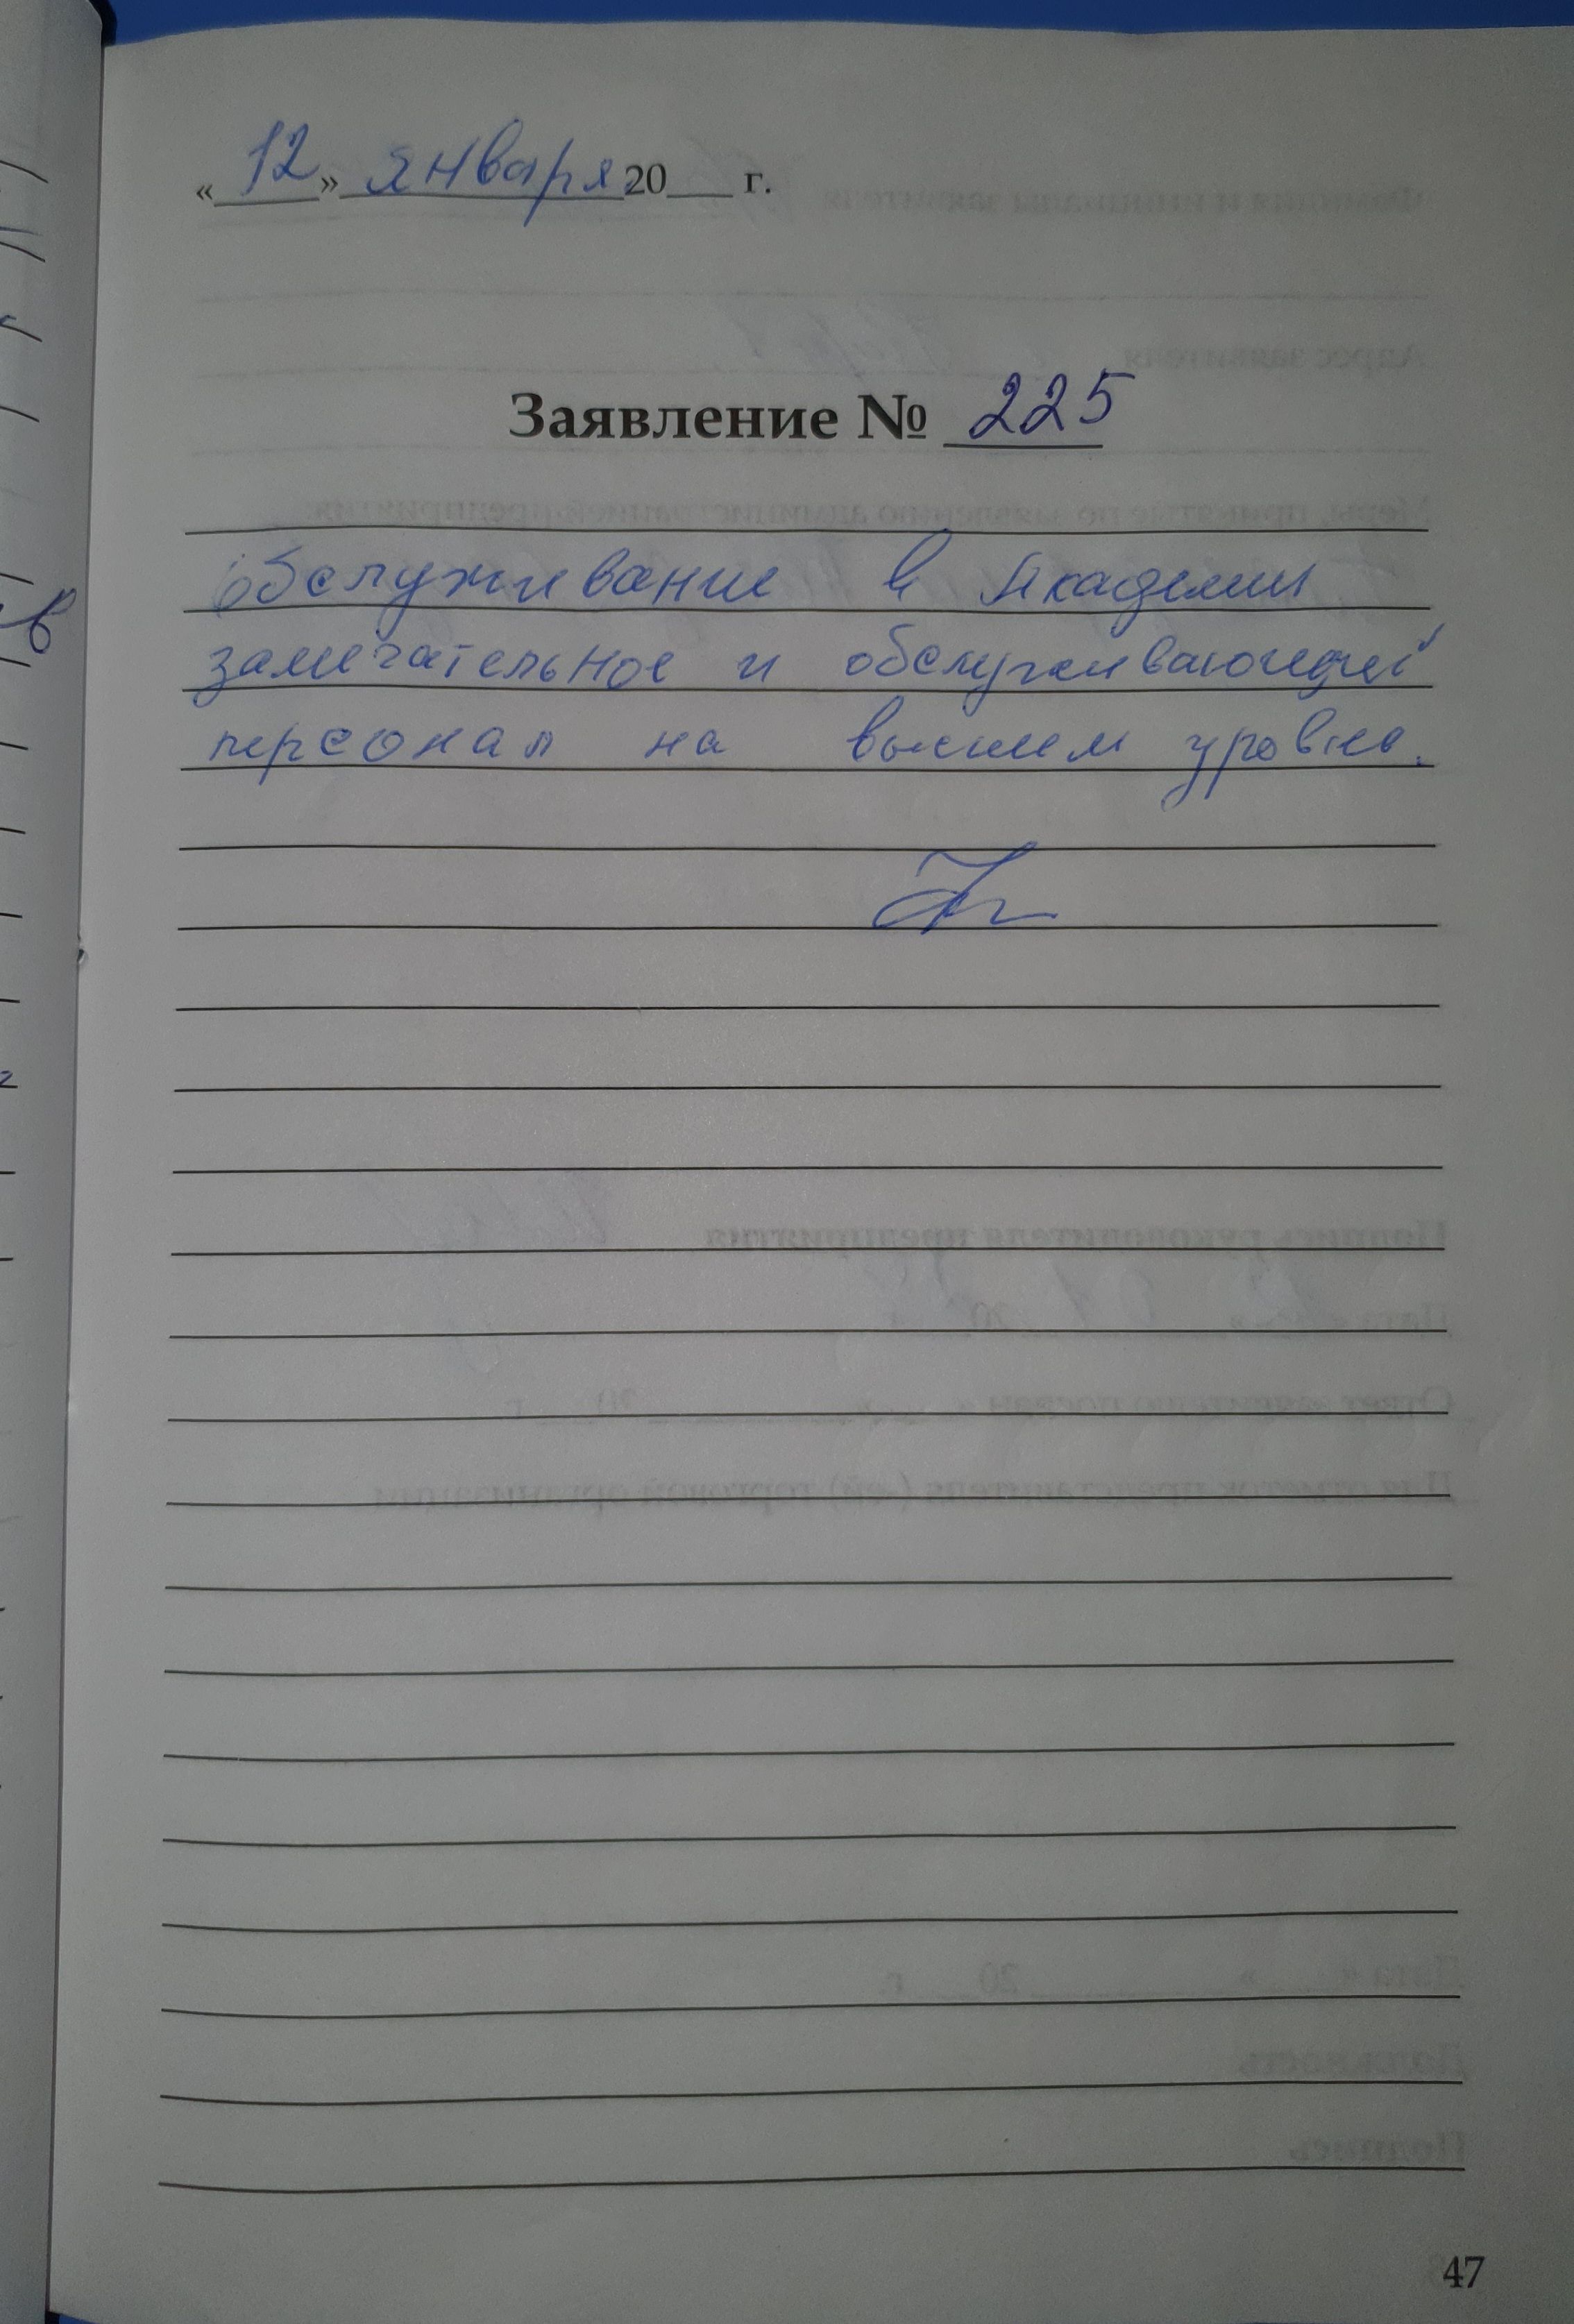 « 12 » января 20___ г.
Заявление № 225
обслуживание в Академии
замечательное и обслуживающий
персонал на высшем уровне.
47